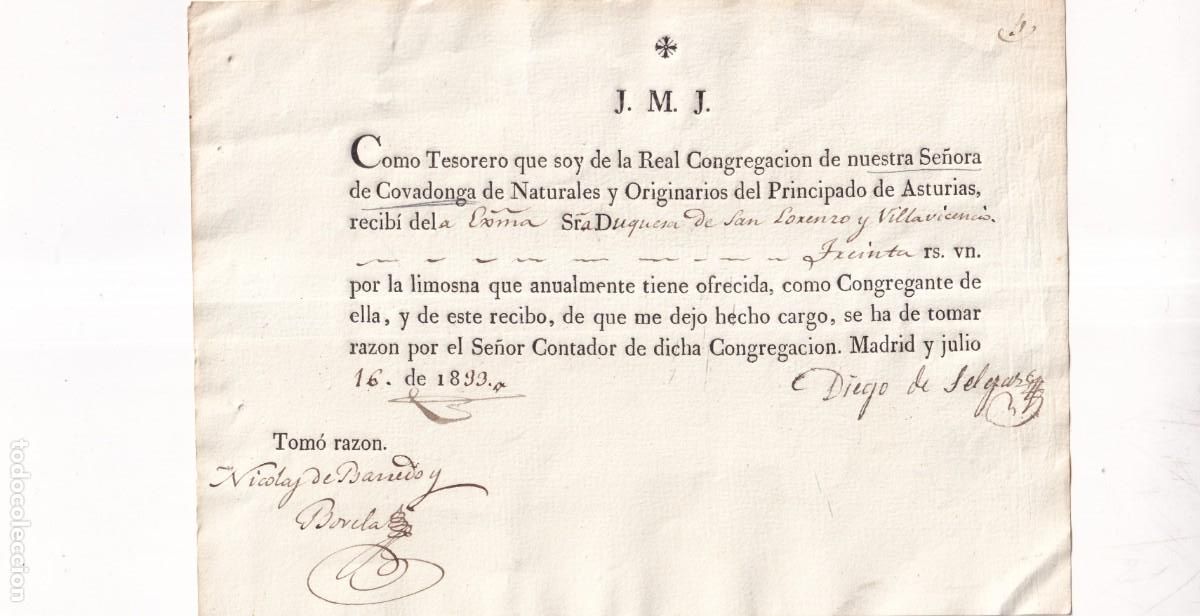 J. M. J.
Como Tesorero que soy de la Real Congregacion de nuestra Señora
de Covadonga de Naturales y Originarios del Principado de Asturias,
recibí dela Exma Sra Duquesa de San Lorenzo y Villavicencio.
Treinta rs. vn.
por la limosna que anualmente tiene ofrecida, como Congregante de
ella, y de este recibo, de que me dejo hecho cargo, se ha de tomar
razon por el Señor Contador de dicha Congregacion. Madrid y julio
16. de 1833.
Diego de Selgas
Tomó razon.
Nicolas de Barredo y
Bovela
todocoleccion